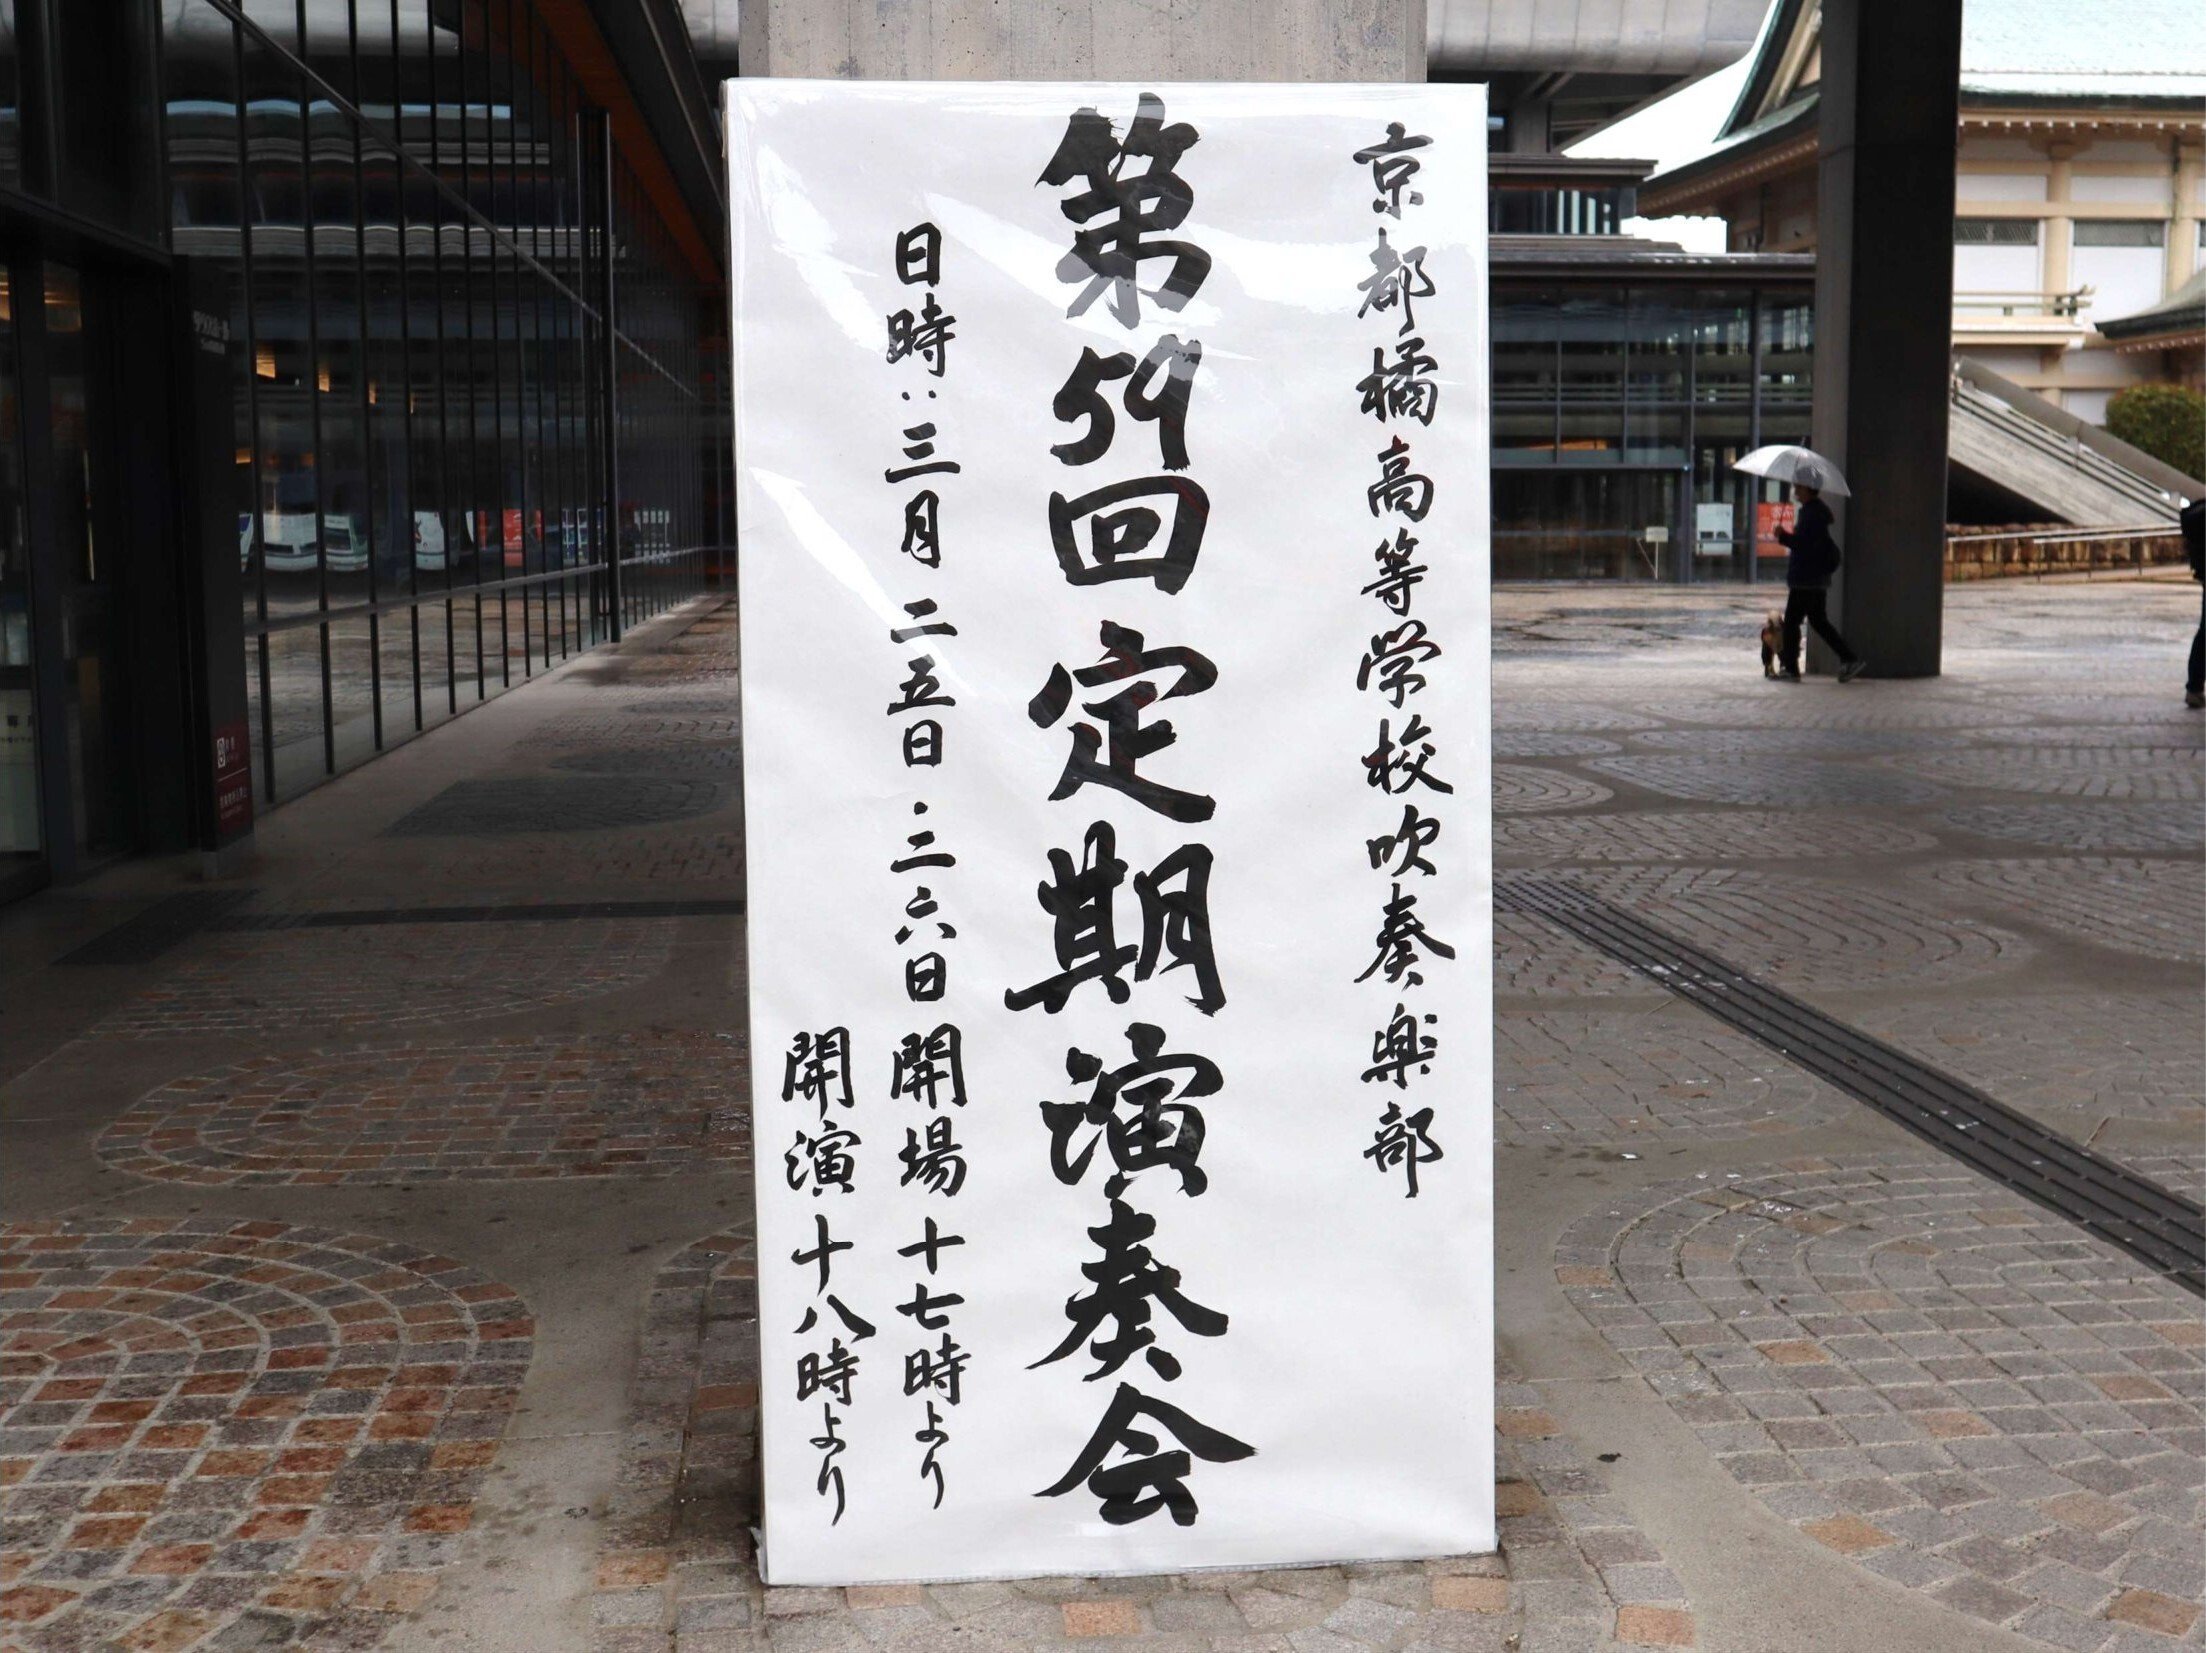 京都橘高等学校吹奏楽部
第59回定期演奏会
日時：三月二五日・二六日 開場十七時より
開演十八時より